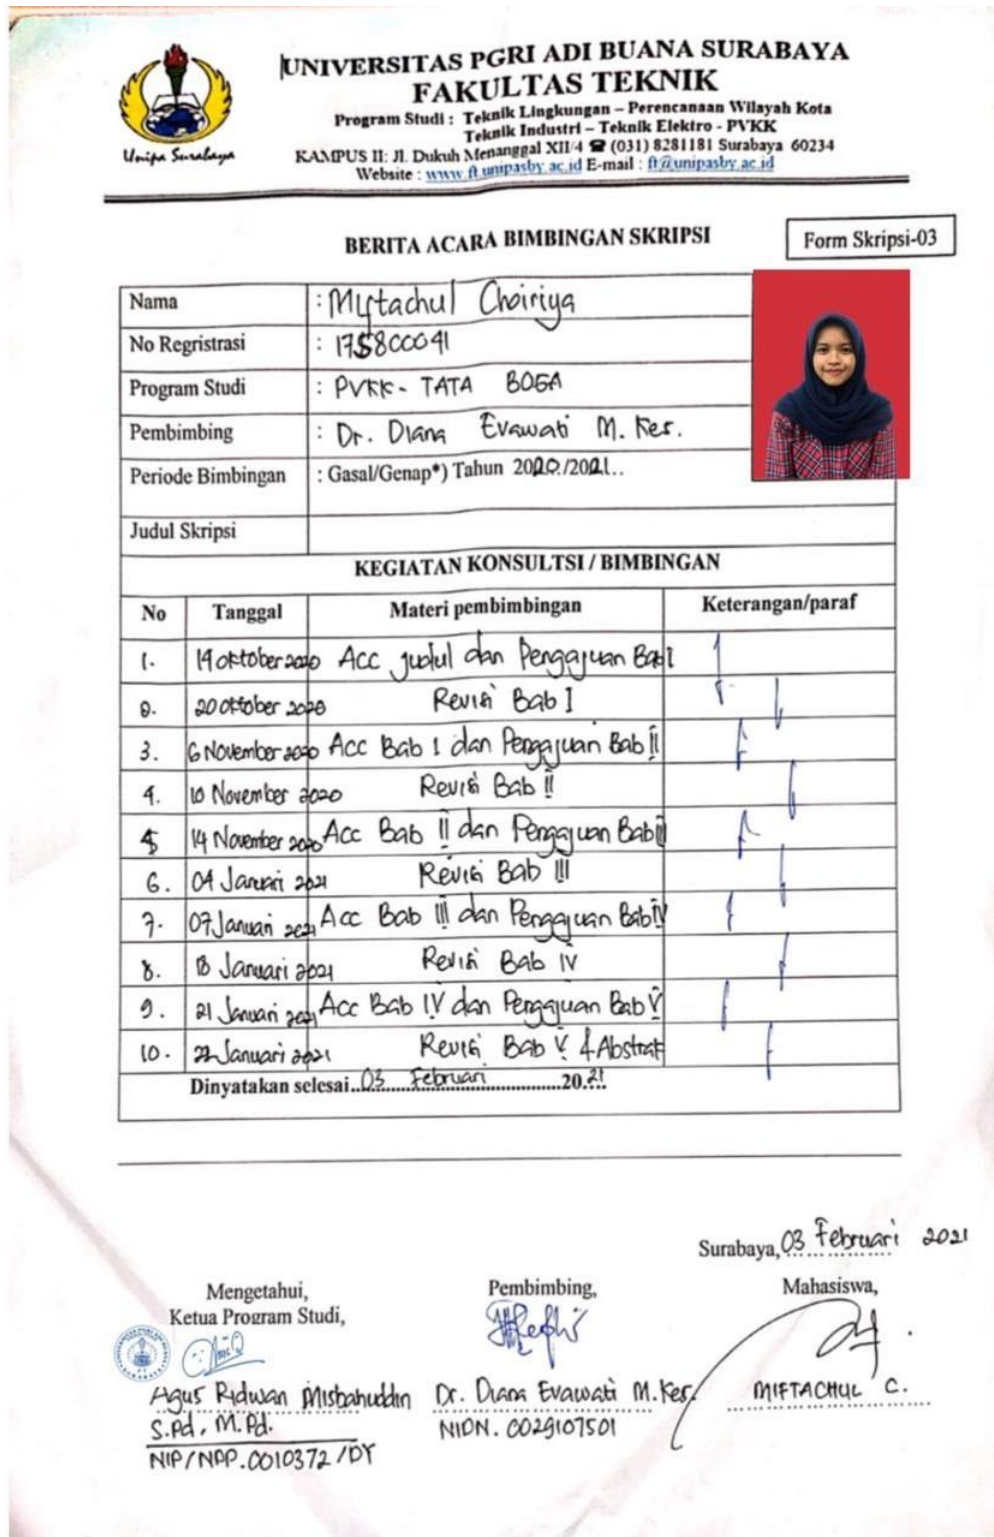 UNIVERSITAS PGRI ADI BUANA SURABAYA
FAKULTAS TEKNIK
Program Studi : Teknik Lingkungan – Perencanaan Wilayah Kota
Teknik Industri – Teknik Elektro - PVKK
KAMPUS II: Jl. Dukuh Menanggal XII/4 ☎ (031) 8281181 Surabaya 60234
Website : www.ft.unipasby.ac.id E-mail : ft@unipasby.ac.id
Unipa Surabaya
BERITA ACARA BIMBINGAN SKRIPSI
Form Skripsi-03
Nama : Miftachul Choiriya
No Regristrasi : 175800041
Program Studi : PVKK - TATA BOGA
Pembimbing : Dr. Diana Evawati M. Kes.
Periode Bimbingan : Gasal/Genap*) Tahun 2020./2021..
Judul Skripsi
KEGIATAN KONSULTSI / BIMBINGAN
No Tanggal Materi pembimbingan Keterangan/paraf
1. 14 oktober 2020 Acc judul dan Pengajuan Bab I
2. 20 oktober 2020 Revisi Bab I
3. 6 November 2020 Acc Bab I dan Pengajuan Bab II
4. 10 November 2020 Revisi Bab II
5 14 November 2020 Acc Bab II dan Pengajuan Bab III
6. 04 Januari 2021 Revisi Bab III
7. 07 Januari 2021 Acc Bab III dan Pengajuan Bab IV
8. 18 Januari 2021 Revisi Bab IV
9. 21 Januari 2021 Acc Bab IV dan Pengajuan Bab V
10. 22 Januari 2021 Revisi Bab V & Abstrak
Dinyatakan selesai..03 Februari....20.21
Surabaya, 03 Februari 2021
Mengetahui,
Ketua Program Studi,
Pembimbing,
Mahasiswa,
Agus Ridwan Misbahuddin
S.Pd, M.Pd.
NIP/NPP.0010372/DY
Dr. Diana Evawati M.Kes.
NIDN. 0029107501
MIFTACHUL C.